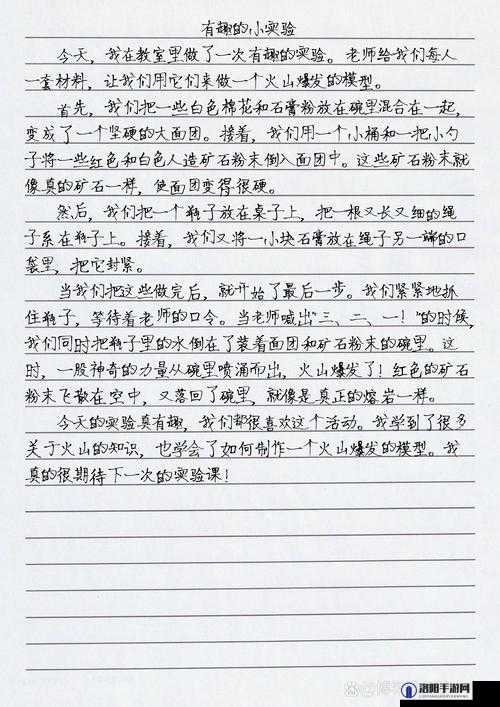 有趣的小实验
今天，我在教室里做了一次有趣的实验。老师给我们每人
一套材料，让我们用它们来做一个火山爆发的模型。
首先，我们把一些白色棉花和石膏粉放在碗里混合在一起，
变成了一个坚硬的大面团。接着，我们用一个小桶和一把小勺
子将一些红色和白色人造矿石粉末倒入面团中。这些矿石粉末就
像真的矿石一样，使面团变得很硬。
然后，我们把一个瓶子放在桌子上，把一根又长又细的绳
子系在瓶子上。接着，我们又将一小块石膏放在绳子另一端的口
袋里，把它封紧。
当我们把这些做完后，就开始了最后一步。我们紧紧地抓
住瓶子，等待着老师的口令。当老师喊出“三、二、一！”的时候，
我们同时把瓶子里的水倒在了装着面团和矿石粉末的碗里。这
时，一股神奇的力量从碗里喷涌而出，火山爆发了！红色的矿石
粉末飞散在空中，又落回了碗里，就像是真正的熔岩一样。
今天的实验真有趣，我们都很喜欢这个活动。我学到了很多
关于火山的知识，也学会了如何制作一个火山爆发的模型。我
真的很期待下一次的实验课！
洛阳手游网